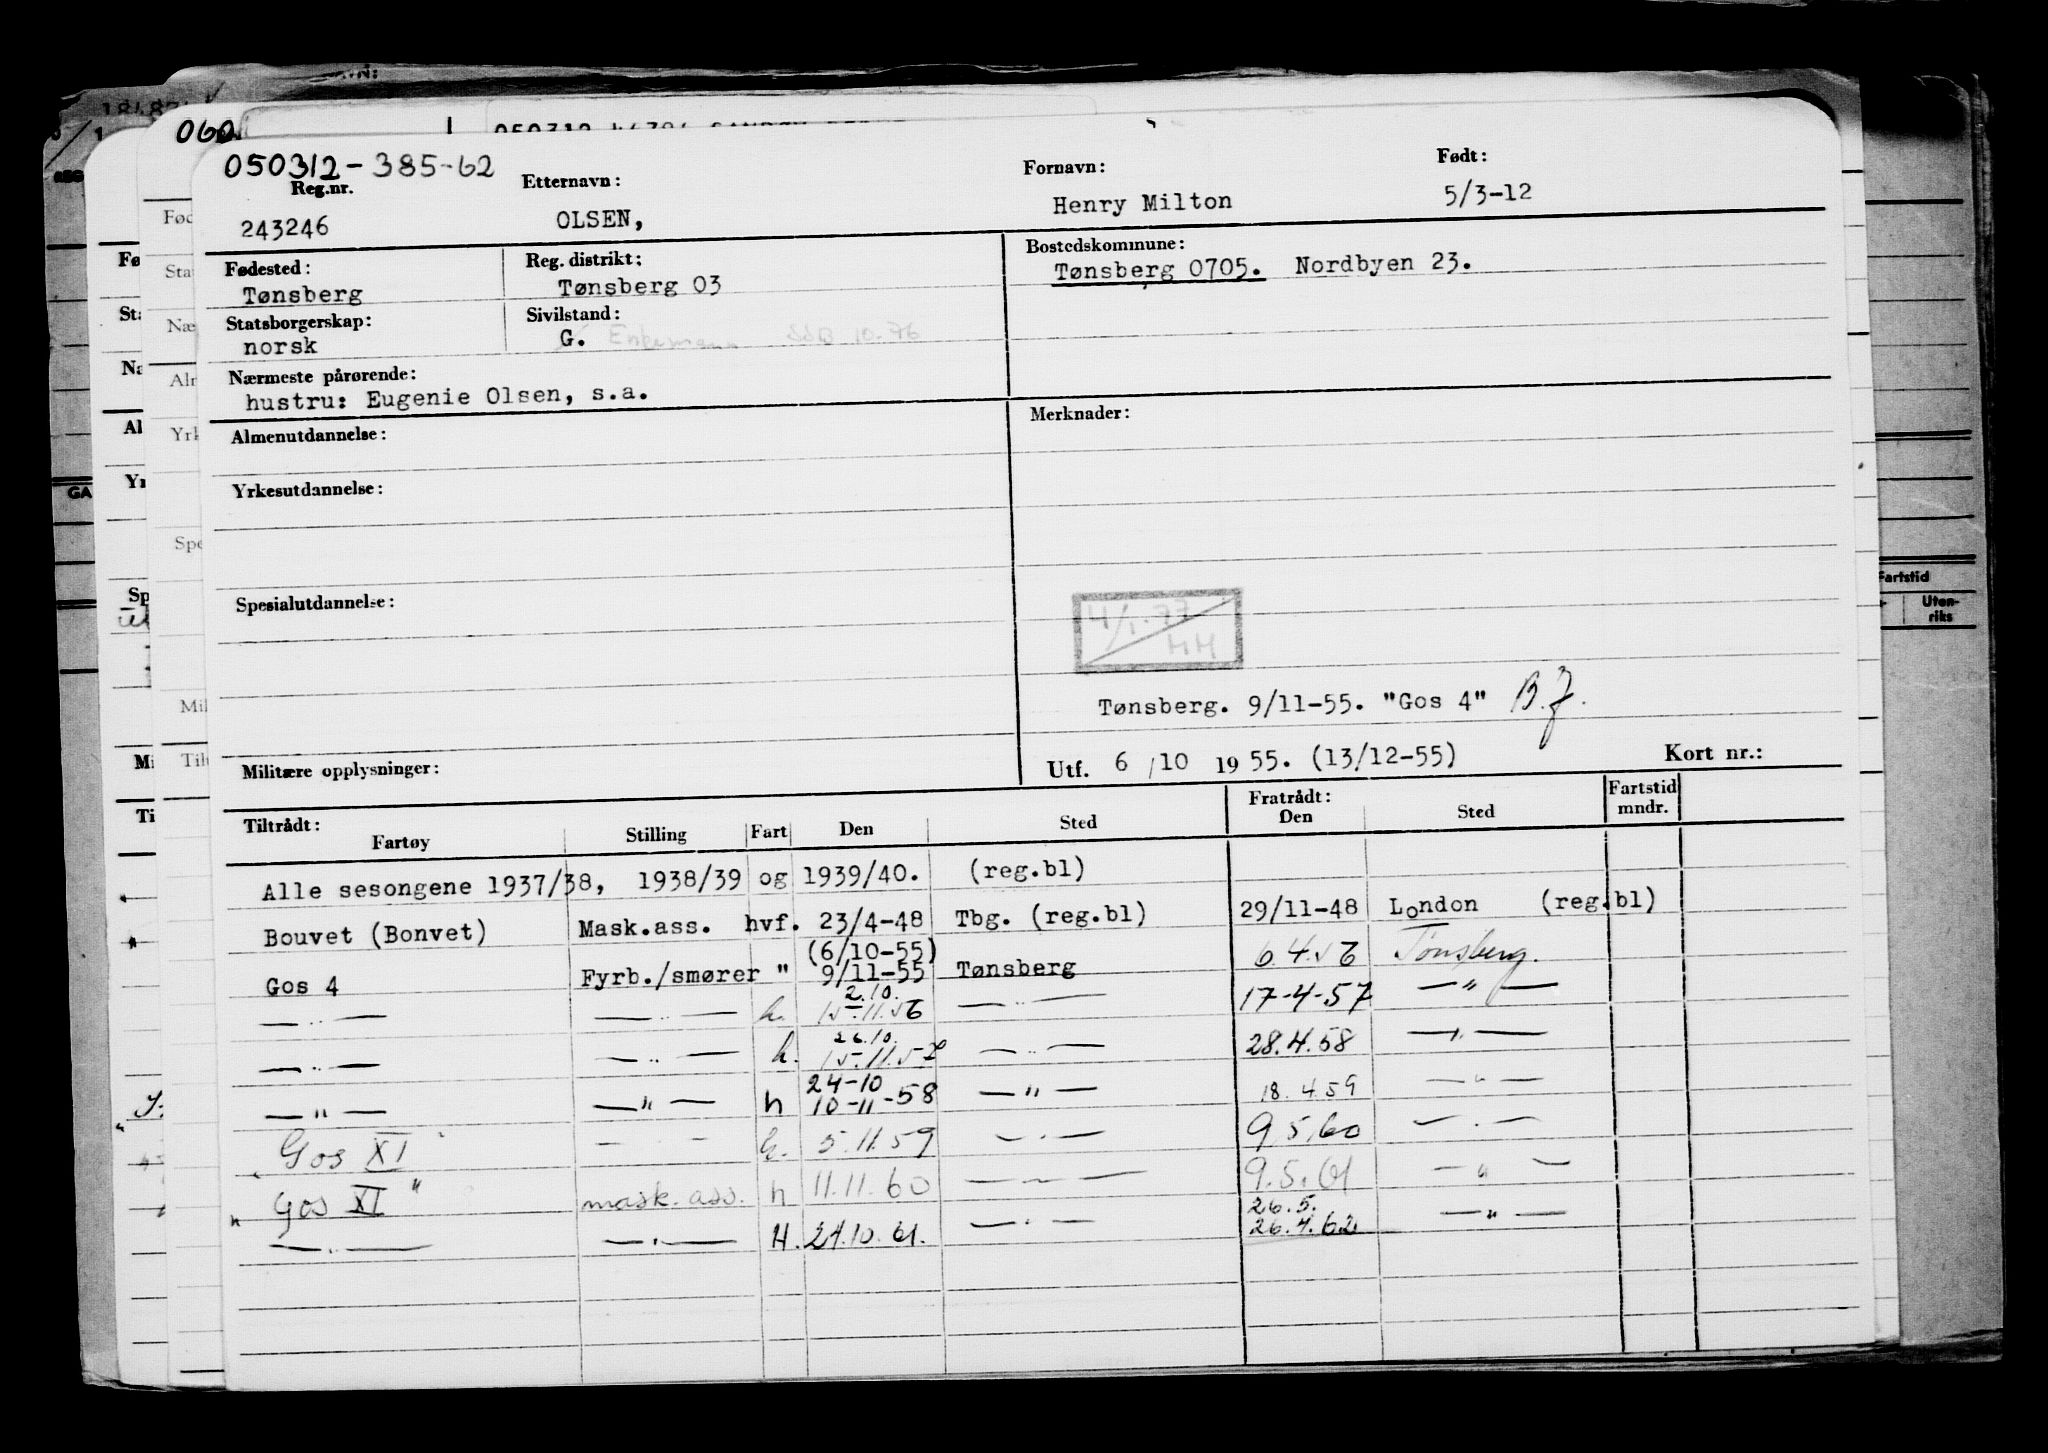 050312-385-62
Reg.nr. Etternavn: Fornavn: Født:
243246 OLSEN, Henry Milton 5/3-12
Fødested: Reg. distrikt: Bostedskommune:
Tønsberg Tønsberg 03 Tønsberg 0705. Nordbyen 23.
Statsborgerskap: Sivilstand:
norsk G. Enkemann SSB 10.76
Nærmeste pårørende:
hustru: Eugenie Olsen, s.a.
Almenutdannelse: Merknader:
Yrkesutdannelse:
Spesialutdannelse: 4/1.77
HH
Tønsberg. 9/11-55. "Gos 4" B.J.
Militære opplysninger: Utf. 6/10 1955. (13/12-55) Kort nr.:
Tiltrådt: Fratrådt: Fartstid
Fartøy Stilling Fart Den Sted Den Sted mndr.
Alle sesongene 1937/38, 1938/39 og 1939/40. (reg.bl)
Bouvet (Bonvet) Mask.ass. hvf. 23/4-48 Tbg. (reg.bl) 29/11-48 London (reg.bl)
(6/10-55)
Gos 4 Fyrb./smører " 9/11-55 Tønsberg 6.4.56 Tønsberg.
2.10.
— " — — " — h. 15.11.56 — " — 17-4-57 — " —
26.10.
— " — — " — h. 15.11.57 — " — 28.4.58 — " —
24-10
— " — — " — h 10-11-58 — " — 18.4.59 — " —
Gos XI — " — h. 5.11.59 — " — 9.5.60 — " —
Gos XI " mask. ass. h 11.11.60 — " — 9.5.61 — " —
26.5.
— " — — " — H. 24.10.61. — " — 26.4.62 — " —